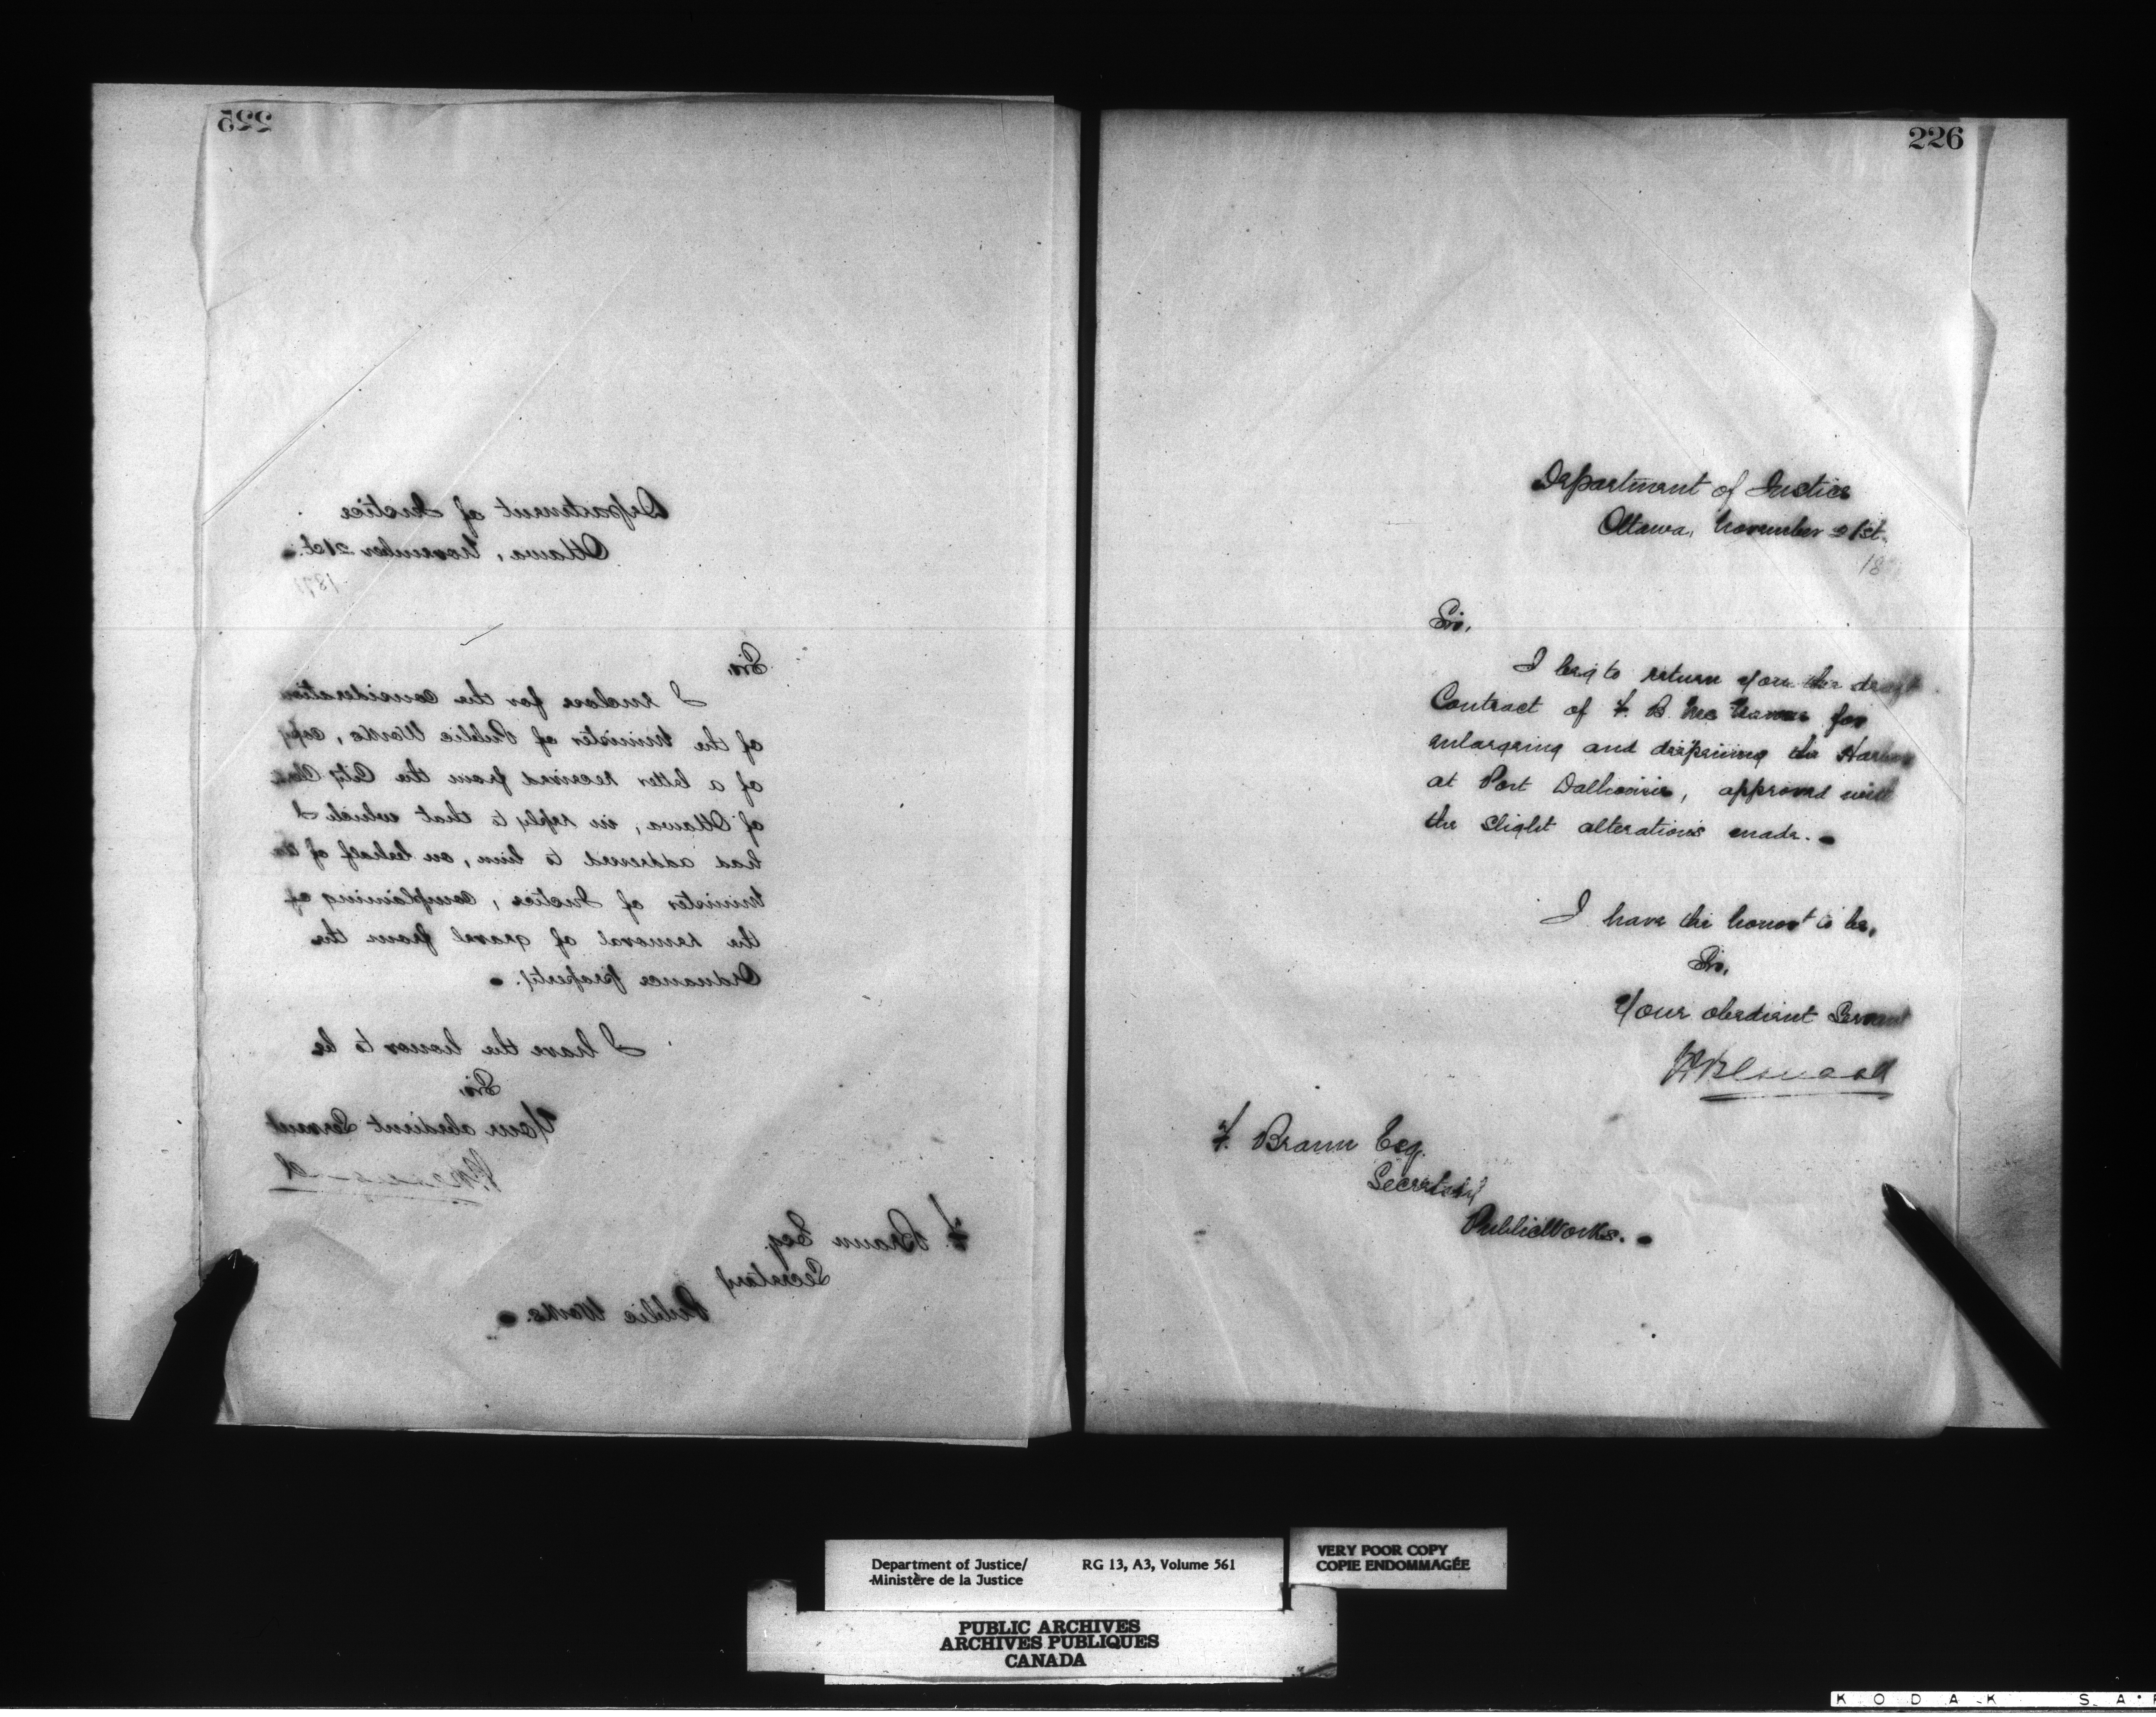 225
Department of Justice
Ottawa, November 21st.
1871
Sir,
I enclose for the consideration
of the Minister of Public Works, copy
of a letter received from the City Clerk
of Ottawa, in reply to that which I
had addressed to him, on behalf of the
Minister of Justice, complaining of
the removal of gravel from the
Ordnance property.
I have the honor to be
Sir,
Your obedient Servant
F. Braun Esq.
Secretary
Public Works.
226
Department of Justice
Ottawa, November 21st.
18
Sir,
I beg to return you the draft
Contract of F. B. Mc for
enlarging and deepening the Harbor
at Port Dalhousie, approved with
the slight alterations made.
I have the honor to be,
Sir,
Your obedient Servant
F. Braun Esq.
Secretary
Public Works.
Department of Justice/ RG 13, A3, Volume 561
Ministère de la Justice
VERY POOR COPY
COPIE ENDOMMAGÉE
PUBLIC ARCHIVES
ARCHIVES PUBLIQUES
CANADA
KODAK SA